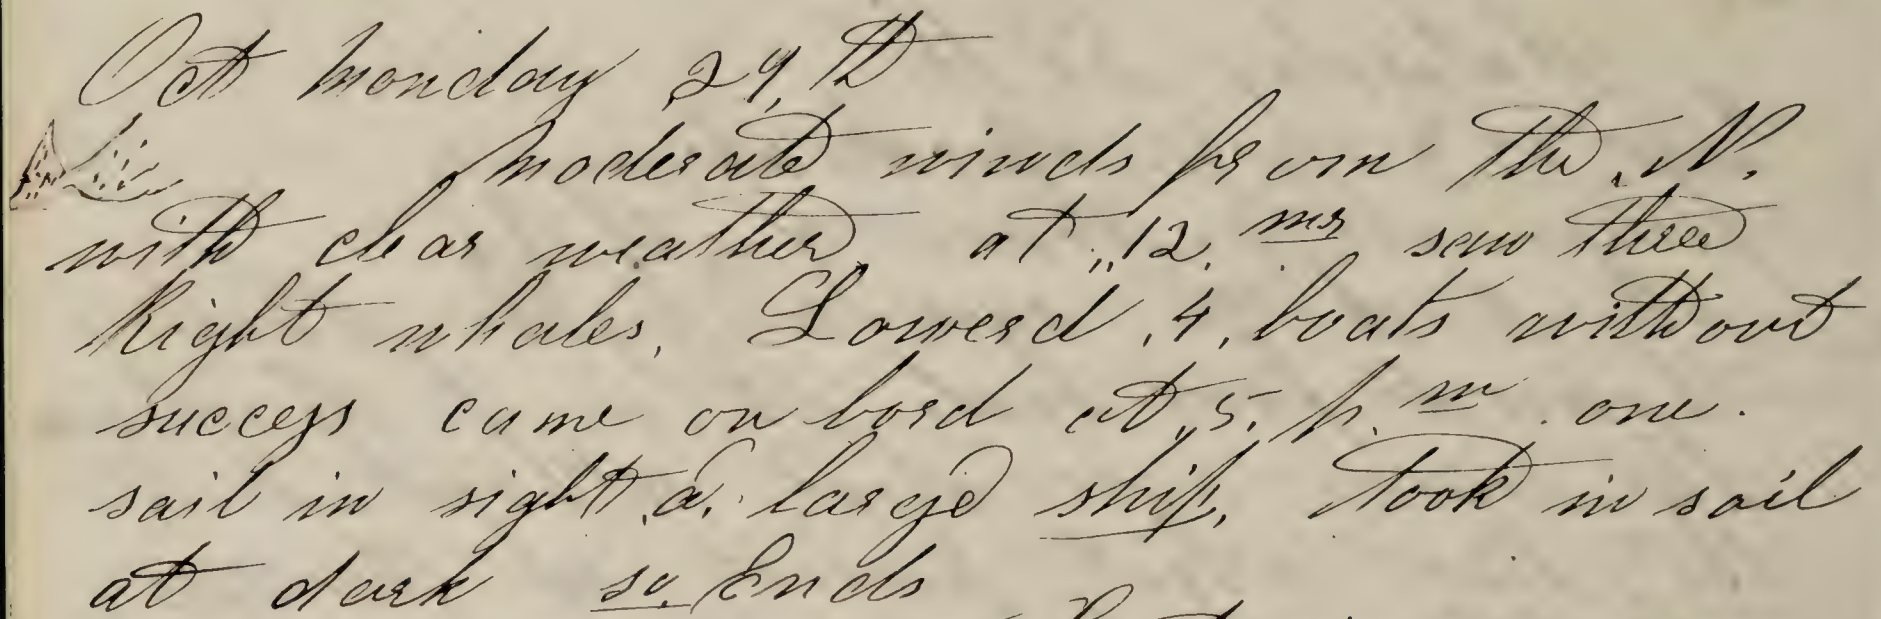 Oct monday 29, th
moderate winds from the, N.
with clear weather at ,,12, ms saw three
Right whales, Lowerd ,4, boats without
success came on bord at ,5, p. m . one .
sail in sight ,a, large ship, took in sail
at dark so, Ends